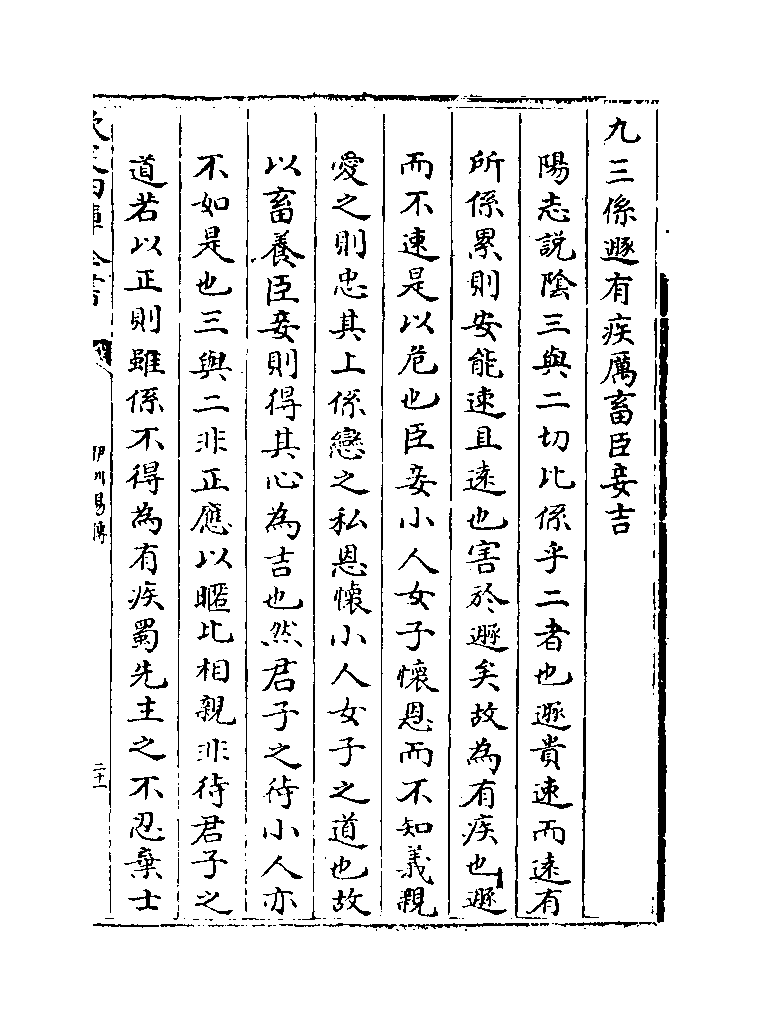 九三係遯有疾厲畜臣妾吉
陽志說陰三與二切比係乎二者也遯貴速而遠有
所係累則安能速且遠也害於遯矣故為有疾也遯
而不速是以危也臣妾小人女子懷恩而不知義親
愛之則忠其上係戀之私恩懷小人女子之道也故
以畜養臣妾則得其心為吉也然君子之待小人亦
不如是也三與二非正應以暱比相親非待君子之
道若以正則雖係不得為有疾蜀先主之不忍棄士
欽定四庫全書
伊川易傳
二十一